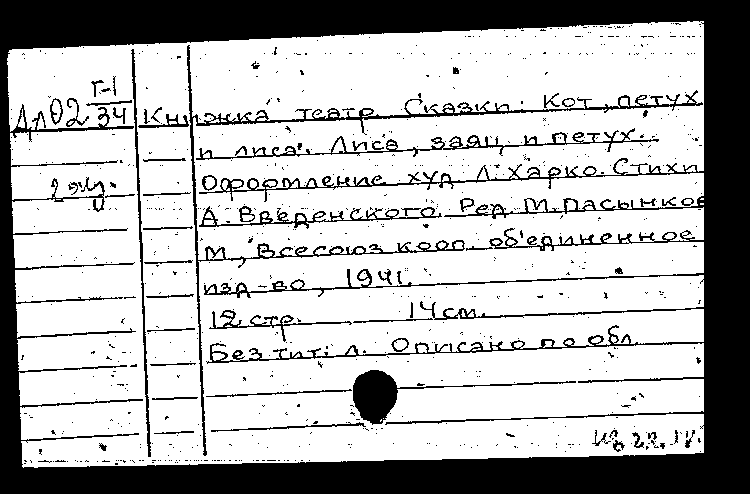 Г-1
Дл02 34 Книжка театр. Сказки: Кот, петух
и лиса. Лиса, заяц и петух.
2 экз. Оформление худ Л. Харко. Стихи
А. Введенского. Ред. М. Пасынков
М, Всесоюз кооп. об'единенное
изд-во, 1941.
12 стр. 14 см.
Без тит. л. Описано по обл.
22.IV.